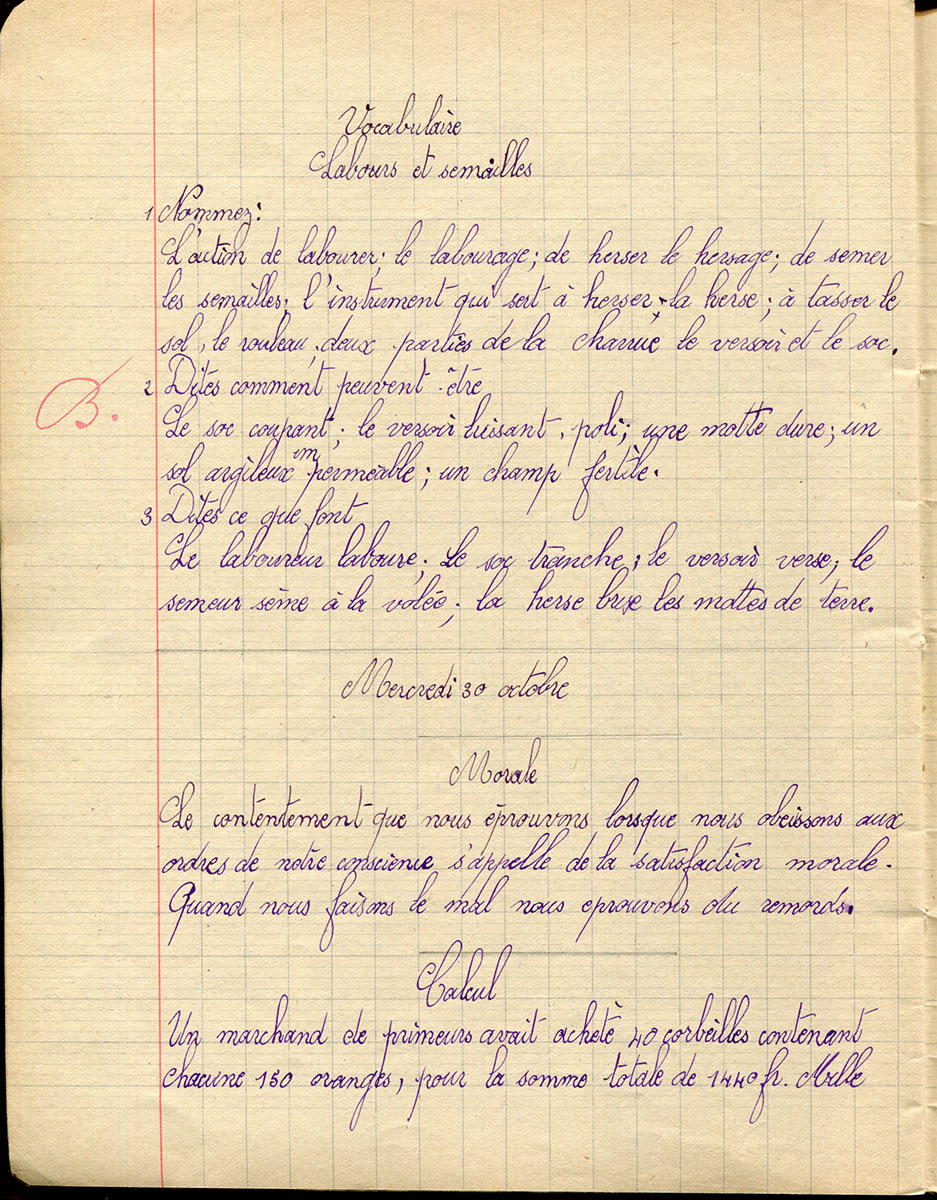 Vocabulaire
Labours et semailles
1 Nommez:
L'action de labourer; le labourage; de herser le hersage; de semer
les semailles; l'instrument qui sert à herser, la herse; à tasser le
sol, le rouleau; deux parties de la charrue le versoir et le soc.
B.
2 Dites comment peuvent-être
Le soc coupant; le versoir luisant, poli; une motte dure; un
sol argileux imperméable; un champ fertile.
3 Dites ce que font
Le laboureur laboure; Le soc tranche; le versoir verse; le
semeur sème à la volée; la herse brise les mottes de terre.
Mercredi 30 octobre
Morale
Le contentement que nous éprouvons lorsque nous obeissons aux
ordres de notre conscience s'appelle de la satisfaction morale.
Quand nous faisons le mal nous eprouvons du remords.
Calcul
Un marchand de primeurs avait acheté 40 corbeilles contenant
chacune 150 oranges, pour la somme totale de 1440 fr. Mille